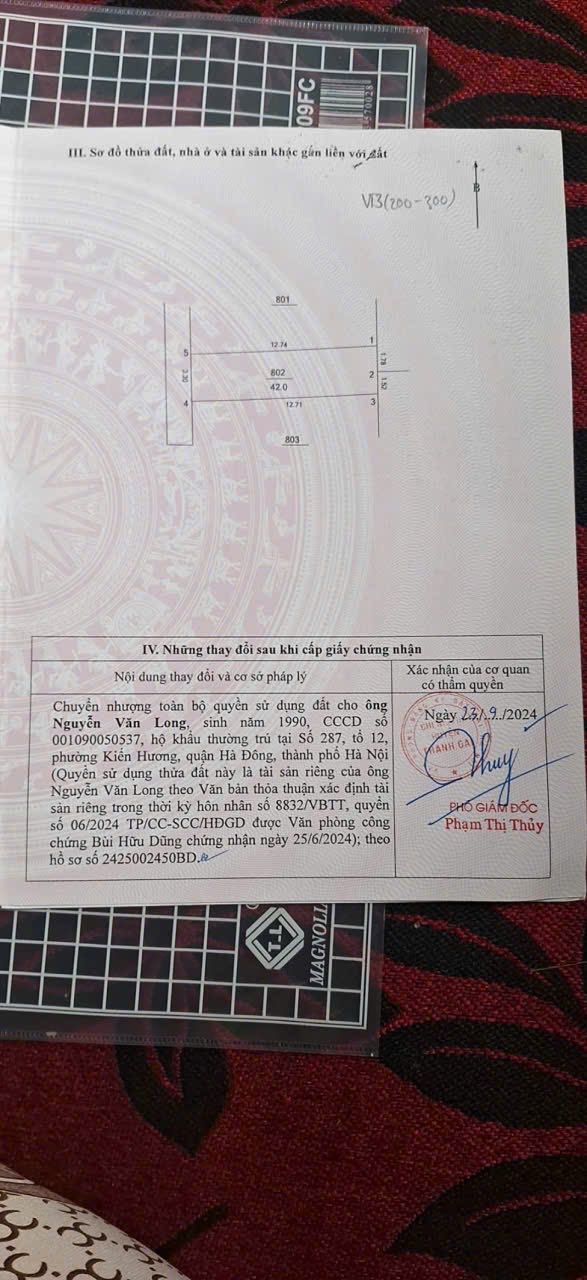 09FC
III. Sơ đồ thửa đất, nhà ở và tài sản khác gắn liền với đất
B
VT3(200-300)
801
12.74
1
5
1.78
802
2
2.30
42.0
1.52
4
12.71
3
803
IV. Những thay đổi sau khi cấp giấy chứng nhận
Nội dung thay đổi và cơ sở pháp lý
Xác nhận của cơ quan
có thẩm quyền
Chuyển nhượng toàn bộ quyền sử dụng đất cho ông
Nguyễn Văn Long, sinh năm 1990, CCCD số
001090050537, hộ khẩu thường trú tại Số 287, tổ 12,
phường Kiến Hương, quận Hà Đông, thành phố Hà Nội
(Quyền sử dụng thửa đất này là tài sản riêng của ông
Nguyễn Văn Long theo Văn bản thỏa thuận xác định tài
sản riêng trong thời kỳ hôn nhân số 8832/VBTT, quyển
số 06/2024 TP/CC-SCC/HĐGD được Văn phòng công
chứng Bùi Hữu Dũng chứng nhận ngày 25/6/2024); theo
hồ sơ số 2425002450BD.
Ngày 23/.9./2024
HUYỆN
THANH OAI
Thuy
PHÓ GIÁM ĐỐC
Phạm Thị Thủy
T-L